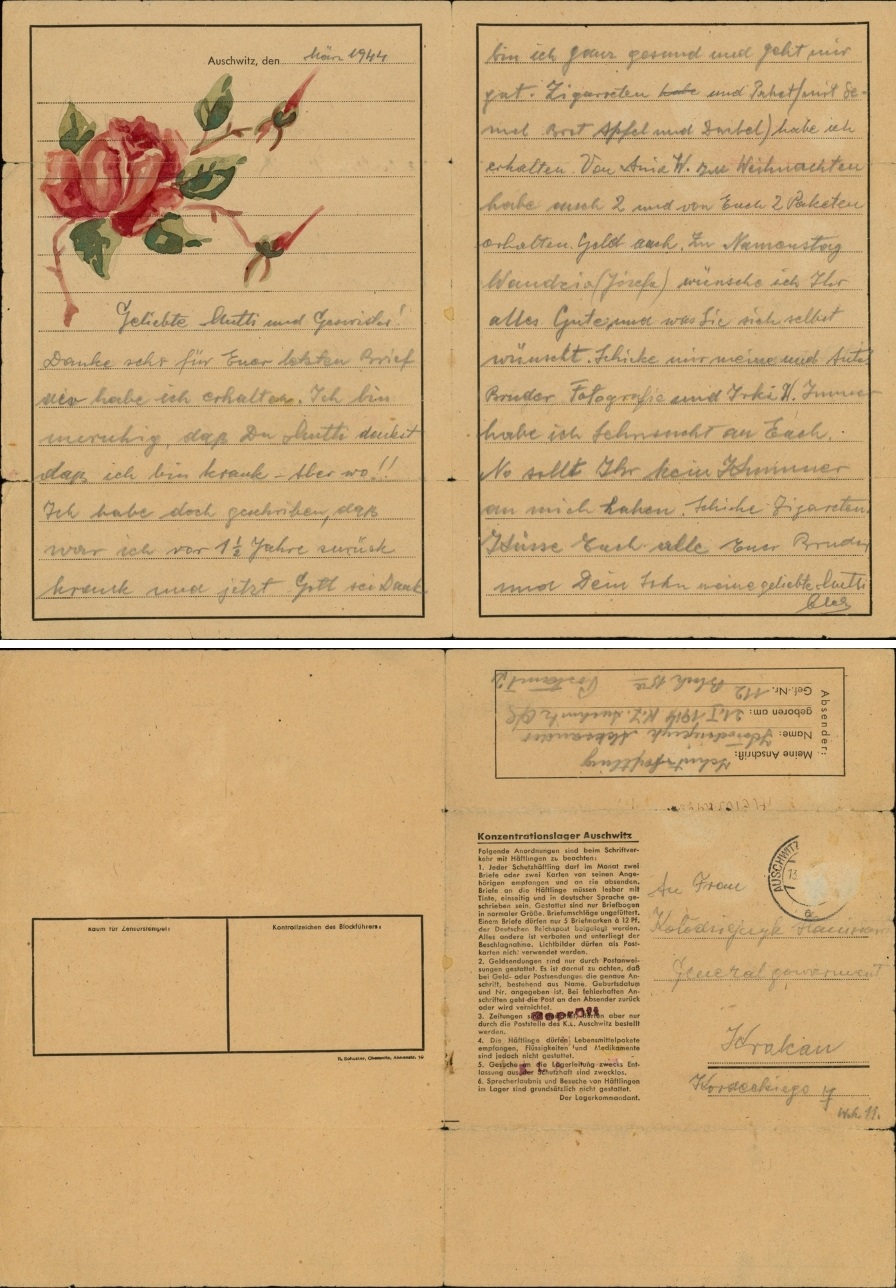 Auschwitz, den März 1944
Geliebte Mutti und Geswister!
Danke sehr für Euer letzten Brief
habe ich erhalten. Ich bin
unruhig, daß Du Mutti denkst
daß ich bin krank – Aber wo!!
Ich habe doch geschrieben, daß
war ich vor 1½ Jahre zurück
krank und jetzt Gott sei Dank
bin ich ganz gesund und geht mir
gut. Zigarreten habe und Paket (mit Se-
mel Brot Apfel und ) habe ich
erhalten. Von Ania W. zu Weihnachten
habe auch 2 und von Euch 2 Paketen
erhalten. Geld auch. Zu Namenstag
Wandzia (Józefa) wünsche ich Ihr
alles Gute und was Sie sich selbst
wünscht. Schicke mir meine und
Bruder Fotografie und Irki W. Immer
habe ich Sehnsucht an Euch.
No sollt Ihr kein Kummer
an mich haben. Schicke Zigareten.
Küsse Euch alle Euer Bruder
und Dein Sohn meine geliebte Mutti
Absender:
Meine Anschrift:
Schutzhäftling
Name: Kołodziejczyk Aleksander
geboren am: 21.I 1914 K.Z. Auschwitz O/S
Gef.-Nr. 112 Block 15a Postamt 2
Konzentrationslager Auschwitz
Folgende Anordnungen sind beim Schriftver-
kehr mit Häftlingen zu beachten:
1. Jeder Schutzhäftling darf im Monat zwei
Briefe oder zwei Karten von seinen Ange-
hörigen empfangen und an sie absenden.
Briefe an die Häftlinge müssen lesbar mit
Tinte, einseitig und in deutscher Sprache ge-
schrieben sein. Gestattet sind nur Briefbogen
in normaler Größe. Briefumschläge ungefüttert.
Einem Briefe dürfen nur 5 Briefmarken à 12 Pf.
der Deutschen Reichspost beigelegt werden.
Alles andere ist verboten und unterliegt der
Beschlagnahme. Lichtbilder dürfen als Post-
karten nicht verwendet werden.
2. Geldsendungen sind nur durch Postanwei-
sungen gestattet. Es ist darauf zu achten, daß
bei Geld- oder Postsendungen die genaue An-
schrift, bestehend aus Name, Geburtsdatum
und Nr. angegeben ist. Bei fehlerhaften An-
schriften geht die Post an den Absender zurück
oder wird vernichtet.
3. Zeitungen sind gestattet, dürfen aber nur
durch die Poststelle des K.L. Auschwitz bestellt
werden.
4. Die Häftlinge dürfen Lebensmittelpakete
empfangen, Flüssigkeiten und Medikamente
sind jedoch nicht gestattet.
5. Gesuche an die Lagerleitung zwecks Ent-
lassung aus der Schutzhaft sind zwecklos.
6. Sprecherlaubnis und Besuche von Häftlingen
in Lager sind grundsätzlich nicht gestattet.
Der Lagerkommandant.
Geprüft
AUSCHWITZ
13
a
An Frau
Kołodziejczyk
Generalgouverment
Krakau
Kordeckiego 7
Raum für Zensurstempel:
Kontrollzeichen des Blockführers: